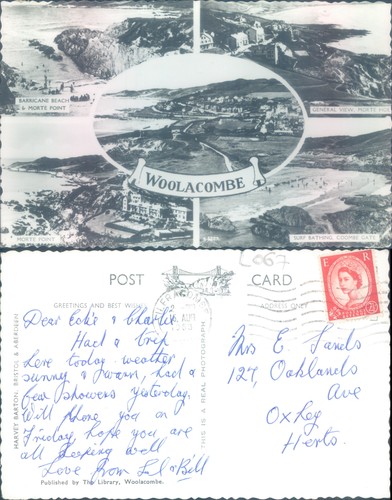 BARRICANE BEACH
& MORTE POINT
GENERAL VIEW, MORTE
WOOLACOMBE
MORTE POINT
SURF BATHING, COOMBE GATE
L667
POST CARD
GREETINGS AND BEST WISHES
ADDRESS ONLY
E R
HARVEY BARTON, BRISTOL & ABERDEEN
THIS IS A REAL PHOTOGRAPH
Dear & Charlie
Had a trip
here today weather
sunny & warm, had a
few showers yesterday.
Will phone you on
Friday, hope you are
all keeping well
Love from & Bill
Published by The Library, Woolacombe.
Mrs E. Sands
127, Oaklands
Ave
Oxhey
Herts.